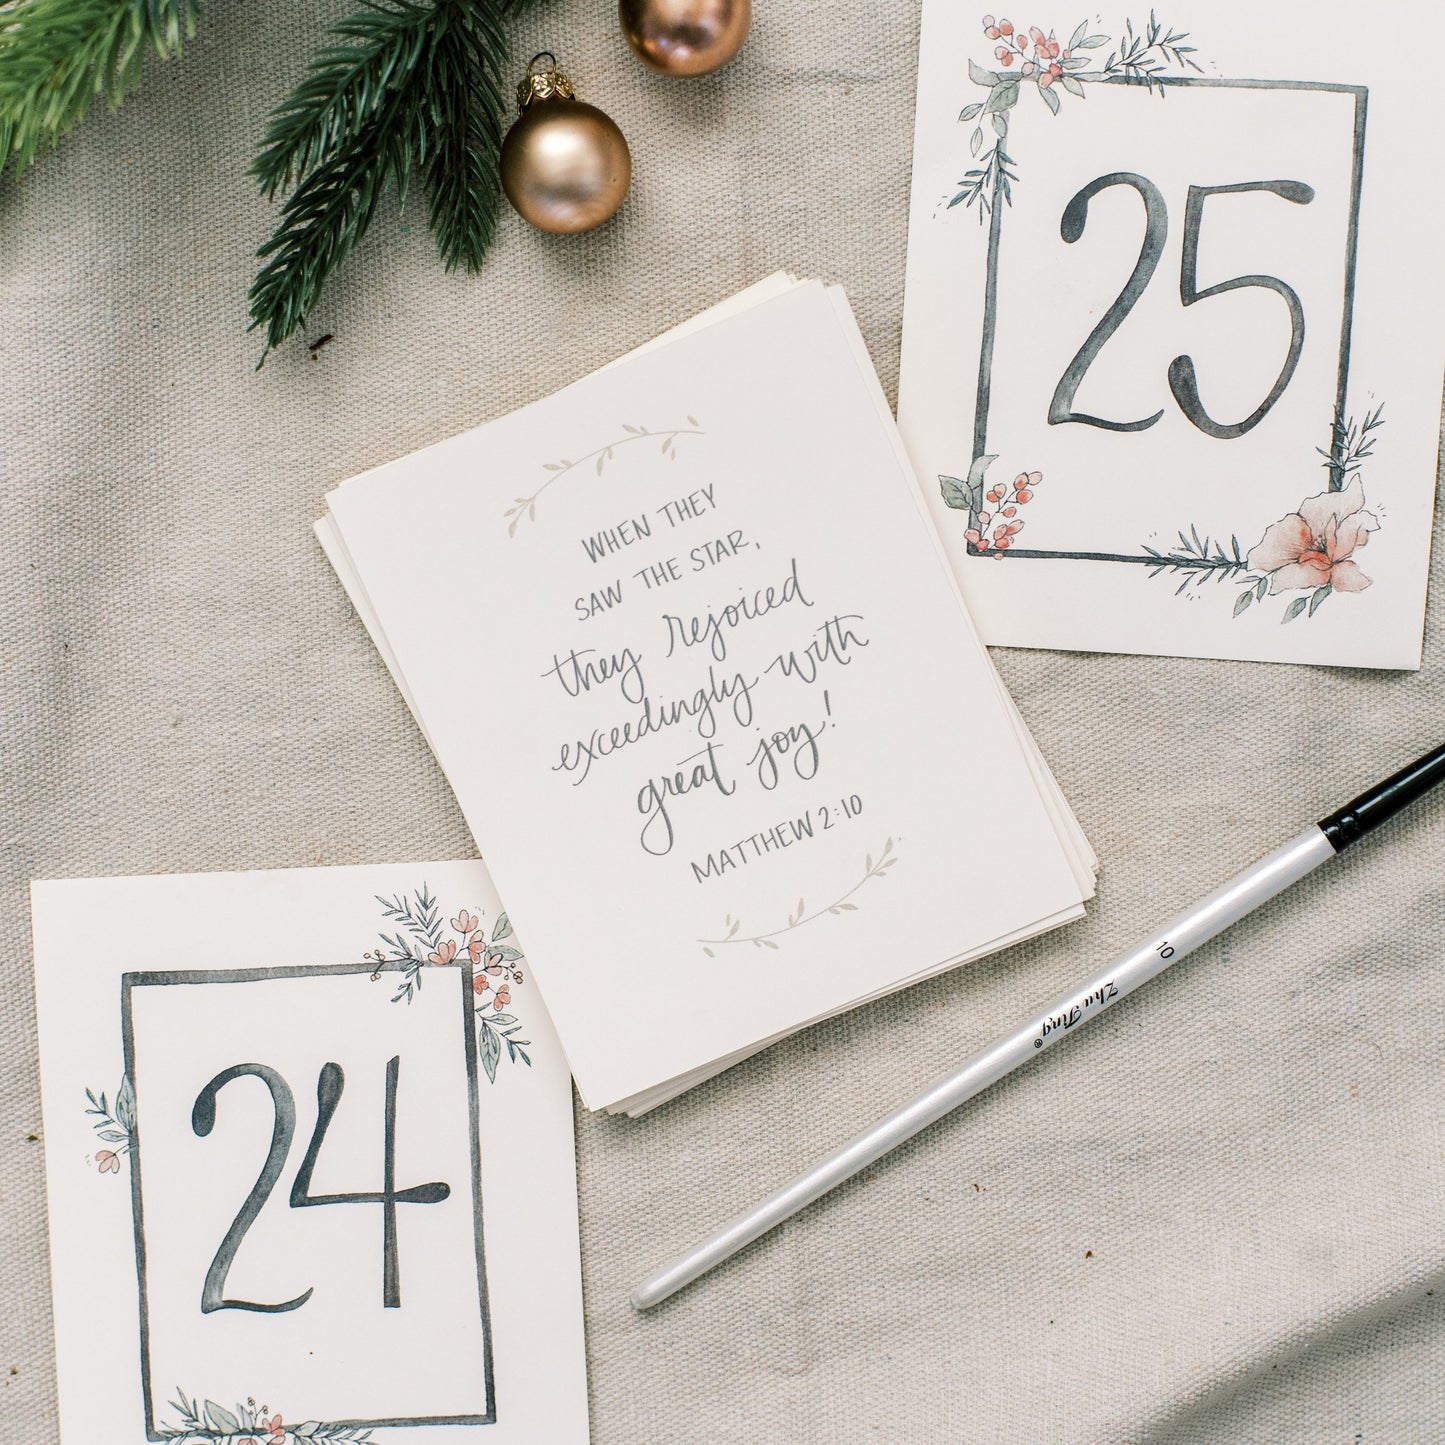 25
WHEN THEY
SAW THE STAR,
they rejoiced
exceedingly with
great joy!
MATTHEW 2:10
24
10
Zhu Ting®